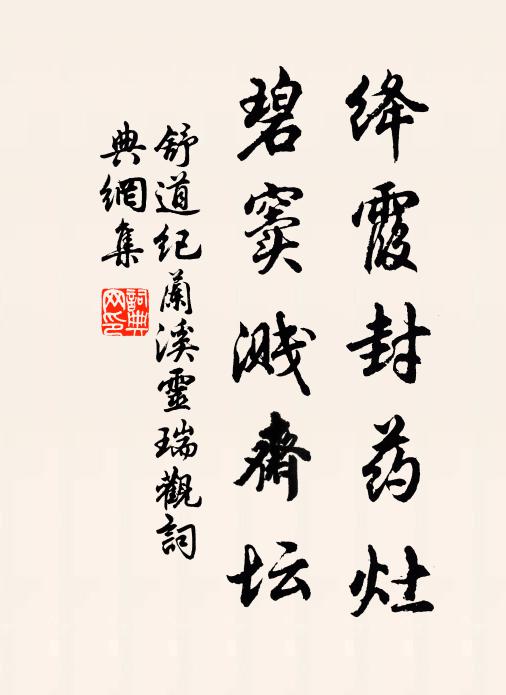 绛霞封药灶
碧窦溅斋坛
舒道纪蘭溪靈瑞觀詞
典網集
詞典
网印